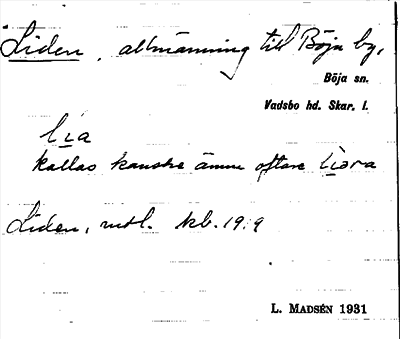 Liden, allmänning till Böja by,
Böja sn.
Vadsbo hd. Skar. l.
lia
kallas kanske ännu oftare liɔra
Liden, utl. kb. 19:9
L. MADSÉN 1931